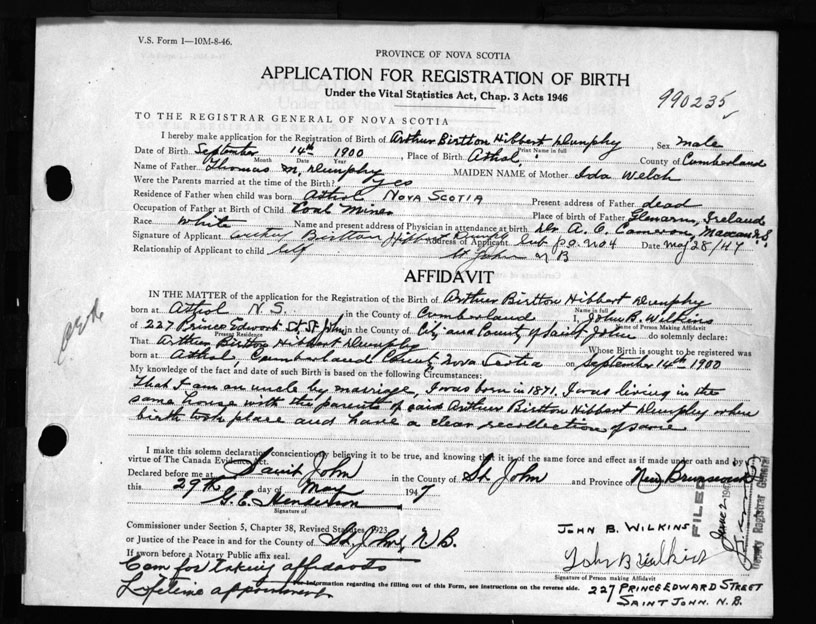 V.S. Form 1—10M-8-46.
PROVINCE OF NOVA SCOTIA
APPLICATION FOR REGISTRATION OF BIRTH
Under the Vital Statistics Act, Chap. 3 Acts 1946
990235
TO THE REGISTRAR GENERAL OF NOVA SCOTIA
I hereby make application for the Registration of Birth of Arthur Birtton Hibbert Dunphy, Sex male
Print Name in full
Date of Birth September 14th 1900, Place of Birth Athol, County of Cumberland
Month Date Year
Name of Father Thomas M. Dunphy MAIDEN NAME of Mother Ida Welch
Were the Parents married at the time of the Birth? yes
Residence of Father when child was born Athol NOVA SCOTIA Present address of Father dead
Occupation of Father at Birth of Child Coal Miner Place of birth of Father Ireland
Race white Name and present address of Physician in attendance at birth Dr. A. C. Cameron, Maccan N.S.
Signature of Applicant Arthur Birtton Hibbert Dunphy Address of Applicant Sub p.o. no 4 Date May 28/47
Relationship of Applicant to child self St John N B
AFFIDAVIT
IN THE MATTER of the application for the Registration of the Birth of Arthur Birtton Hibbert Dunphy
Name in full
born at Athol N.S. in the County of Cumberland I, John B. Wilkins
Name of Person Making Affidavit
of 227 Prince Edward St, St. John in the County of City and County of Saint John do solemnly declare:
Present Residence
That Arthur Birtton Hibbert Dunphy Whose Birth is sought to be registered was
born at Athol, Cumberland County, Nova Scotia on September 14th 1900
My knowledge of the fact and date of such Birth is based on the following Circumstances:
That I am an uncle by marriage, I was born in 1871. I was living in the
same house with the parents of said Arthur Birtton Hibbert Dunphy when
birth took place and have a clear recollection of same
I make this solemn declaration conscientiously believing it to be true, and knowing that it is of the same force and effect as if made under oath and by
virtue of The Canada Evidence Act.
Declared before me at Saint John in the County of St. John and Province of New Brunswick
this 29th day of May 1947
G. E. Henderson
Signature of
Commissioner under Section 5, Chapter 38, Revised Statutes 1923
or Justice of the Peace in and for the County of St. John, N.B.
If sworn before a Notary Public affix seal.
Com for taking affidavits
Lifetime appointment
FILED
June 2
Deputy Registrar General
JOHN B. WILKINS
John B Wilkins
Signature of Person making Affidavit
For information regarding the filling out of this Form, see instructions on the reverse side.
227 PRINCE EDWARD STREET
SAINT JOHN. N.B.